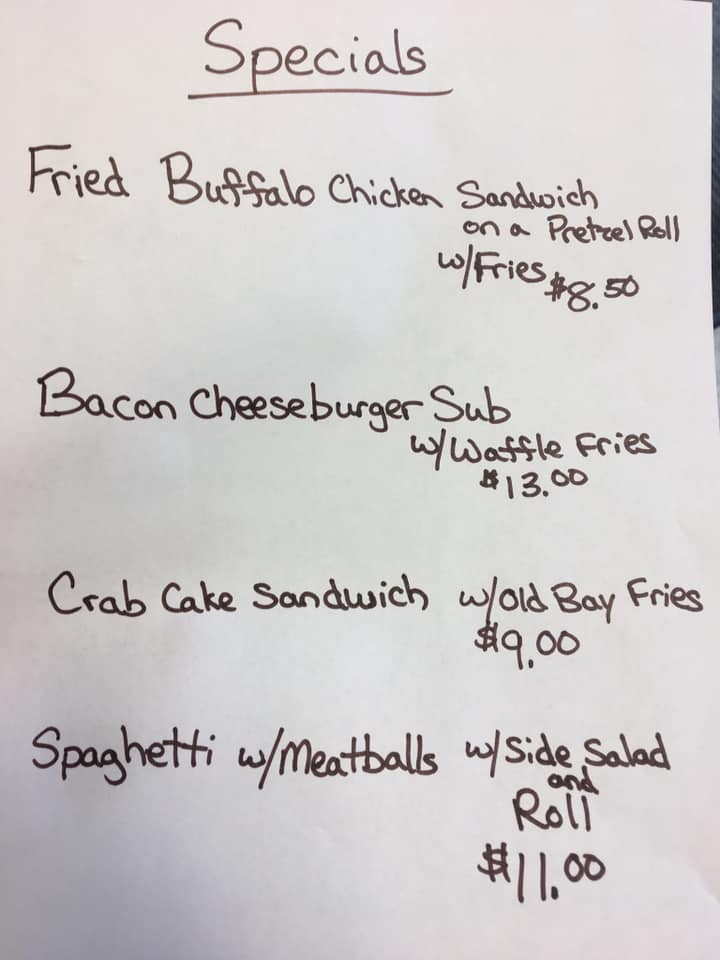 Specials
Fried Buffalo Chicken Sandwich
on a Pretzel Roll
w/Fries $8.50
Bacon Cheeseburger Sub
w/Waffle Fries
$13.00
Crab Cake Sandwich w/Old Bay Fries
$9.00
Spaghetti w/Meatballs w/Side Salad
and
Roll
$11.00